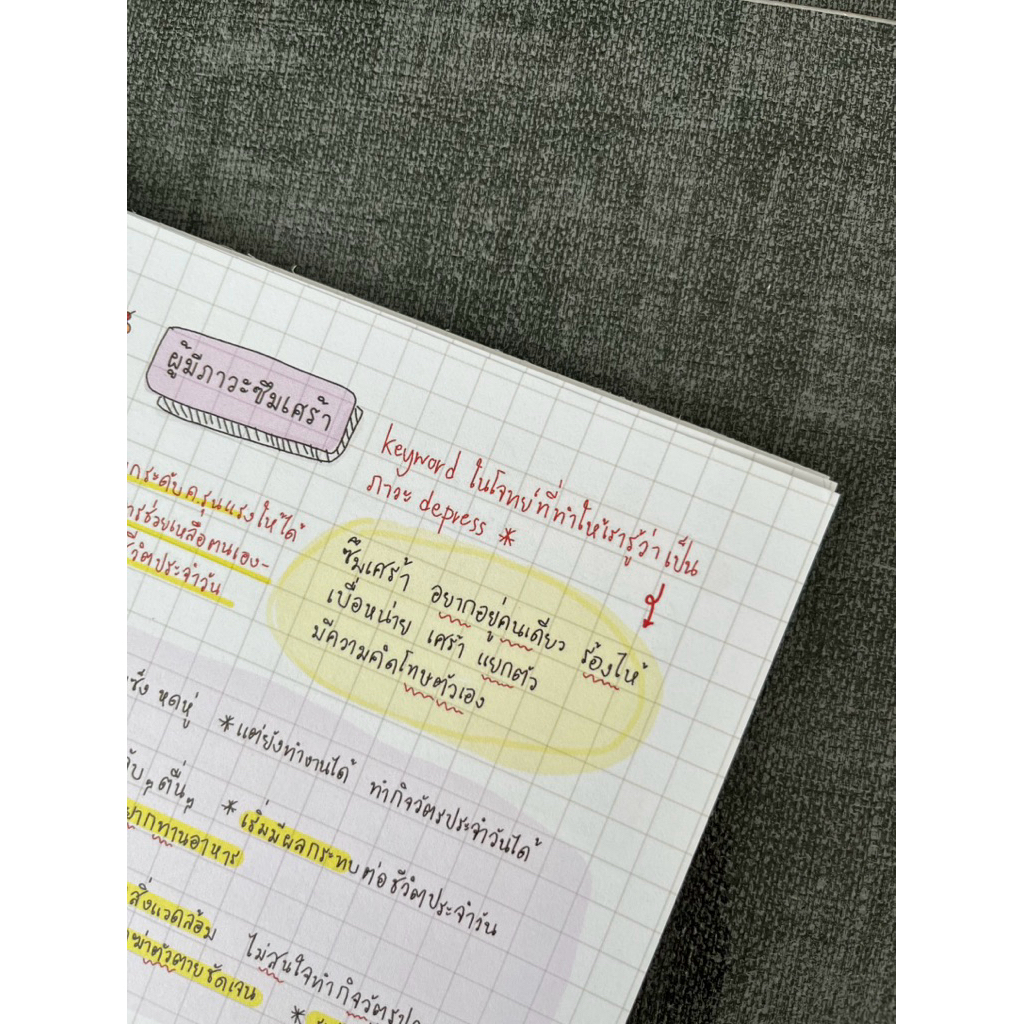 ผู้มีภาวะซึมเศร้า
keyword ในโจทย์ที่ทำให้เรารู้ว่าเป็น
ภาวะ depress *
กระดับค.รุนแรงให้ได้
ารช่วยเหลือตนเอง-
ชีวิตประจำวัน
ซึมเศร้า อยากอยู่คนเดียว ร้องไห้
เบื่อหน่าย เศร้า แยกตัว
มีความคิดโทษตัวเอง
หดหู่ *แต่ยังทำงานได้ ทำกิจวัตรประจำวันได้
ตื่นๆ *เริ่มมีผลกระทบต่อชีวิตประจำวัน
ยากทานอาหาร
สิ่งแวดล้อม ไม่สนใจทำกิจวัตรประ
ฆ่าตัวตายชัดเจน *